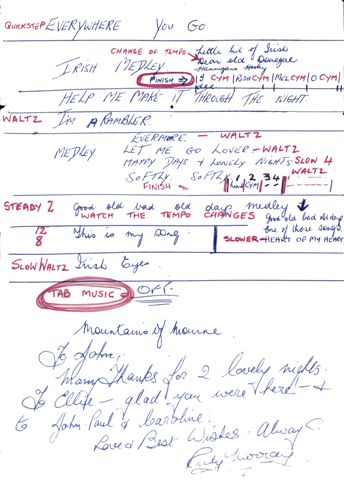 QUICKSTEP EVERYWHERE YOU GO
CHANGE OF TEMPO Little bit of Irish
Dear old Donegal
IRISH MEDLEY
FINISH → CYM | RSH CYM | MCL CYM | O CYM |
HELP ME MAKE IT THROUGH THE NIGHT.
WALTZ I'M A RAMBLER.
EVERMORE. - WALTZ
MEDLEY LET ME GO LOVER - WALTZ
HAPPY DAYS + LONELY NIGHTS SLOW 4
SOFTLY. SOFTLY. 1 2 3 4 WALTZ
FINISH CYM
STEADY 2 Good old bad old days medley ↓
WATCH THE TEMPO CHANGES Good old bad old days
12/8 This is my song. One of those songs.
SLOWER - HEART OF MY HEART
SLOW WALTZ Irish Eyes.
TAB MUSIC - OFF.
Mountains of Mourne
To John,
Many Thanks for 2 lovely nights.
To Ellie - glad you were there - +
to John-Paul & Caroline.
Love & Best Wishes - Always
Ruby Murray